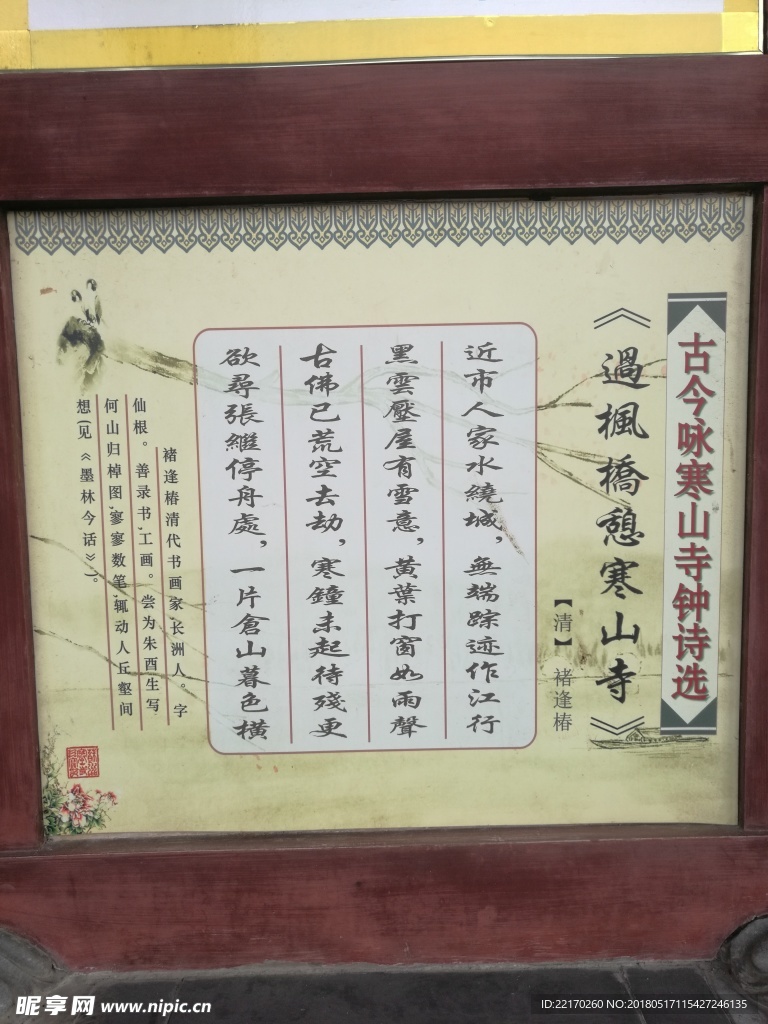 古今咏寒山寺钟诗选
《過楓橋憩寒山寺》
【清】褚逢椿
近市人家水繞城，無端踪迹作江行
黑雲壓屋有雪意，黃葉打窗如雨聲
古佛已荒空去劫，寒鐘未起待殘更
欲尋張繼停舟處，一片倉山暮色橫
褚逢椿清代书画家,长洲人。字
仙根。善录书,工画。尝为朱酉生写
何山归棹图,寥寥数笔,辄动人丘壑间
想(见《墨林今话》)。
昵享网 www.nipic.cn
ID:22170260 NO:20180517115427246135